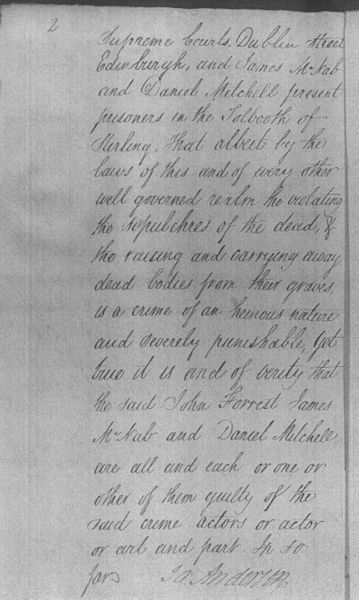 2
Supreme Courts, Dublin Street
Edinburgh, and James McNab
and Daniel Mitchell present
prisoners in the Tolbooth of
Stirling, That albeit by the
laws of this and of every other
well governed realm the violating
the sepulchres of the dead, &
the raising and carrying away
dead bodies from their graves,
is a crime of an heinous nature
and severely punishable, Yet
true it is and of verity that
the said John Forrest James
McNab and Daniel Mitchell
are all and each or one or
other of them guilty of the
said crime actors or actor
or art and part In so
far Anderson